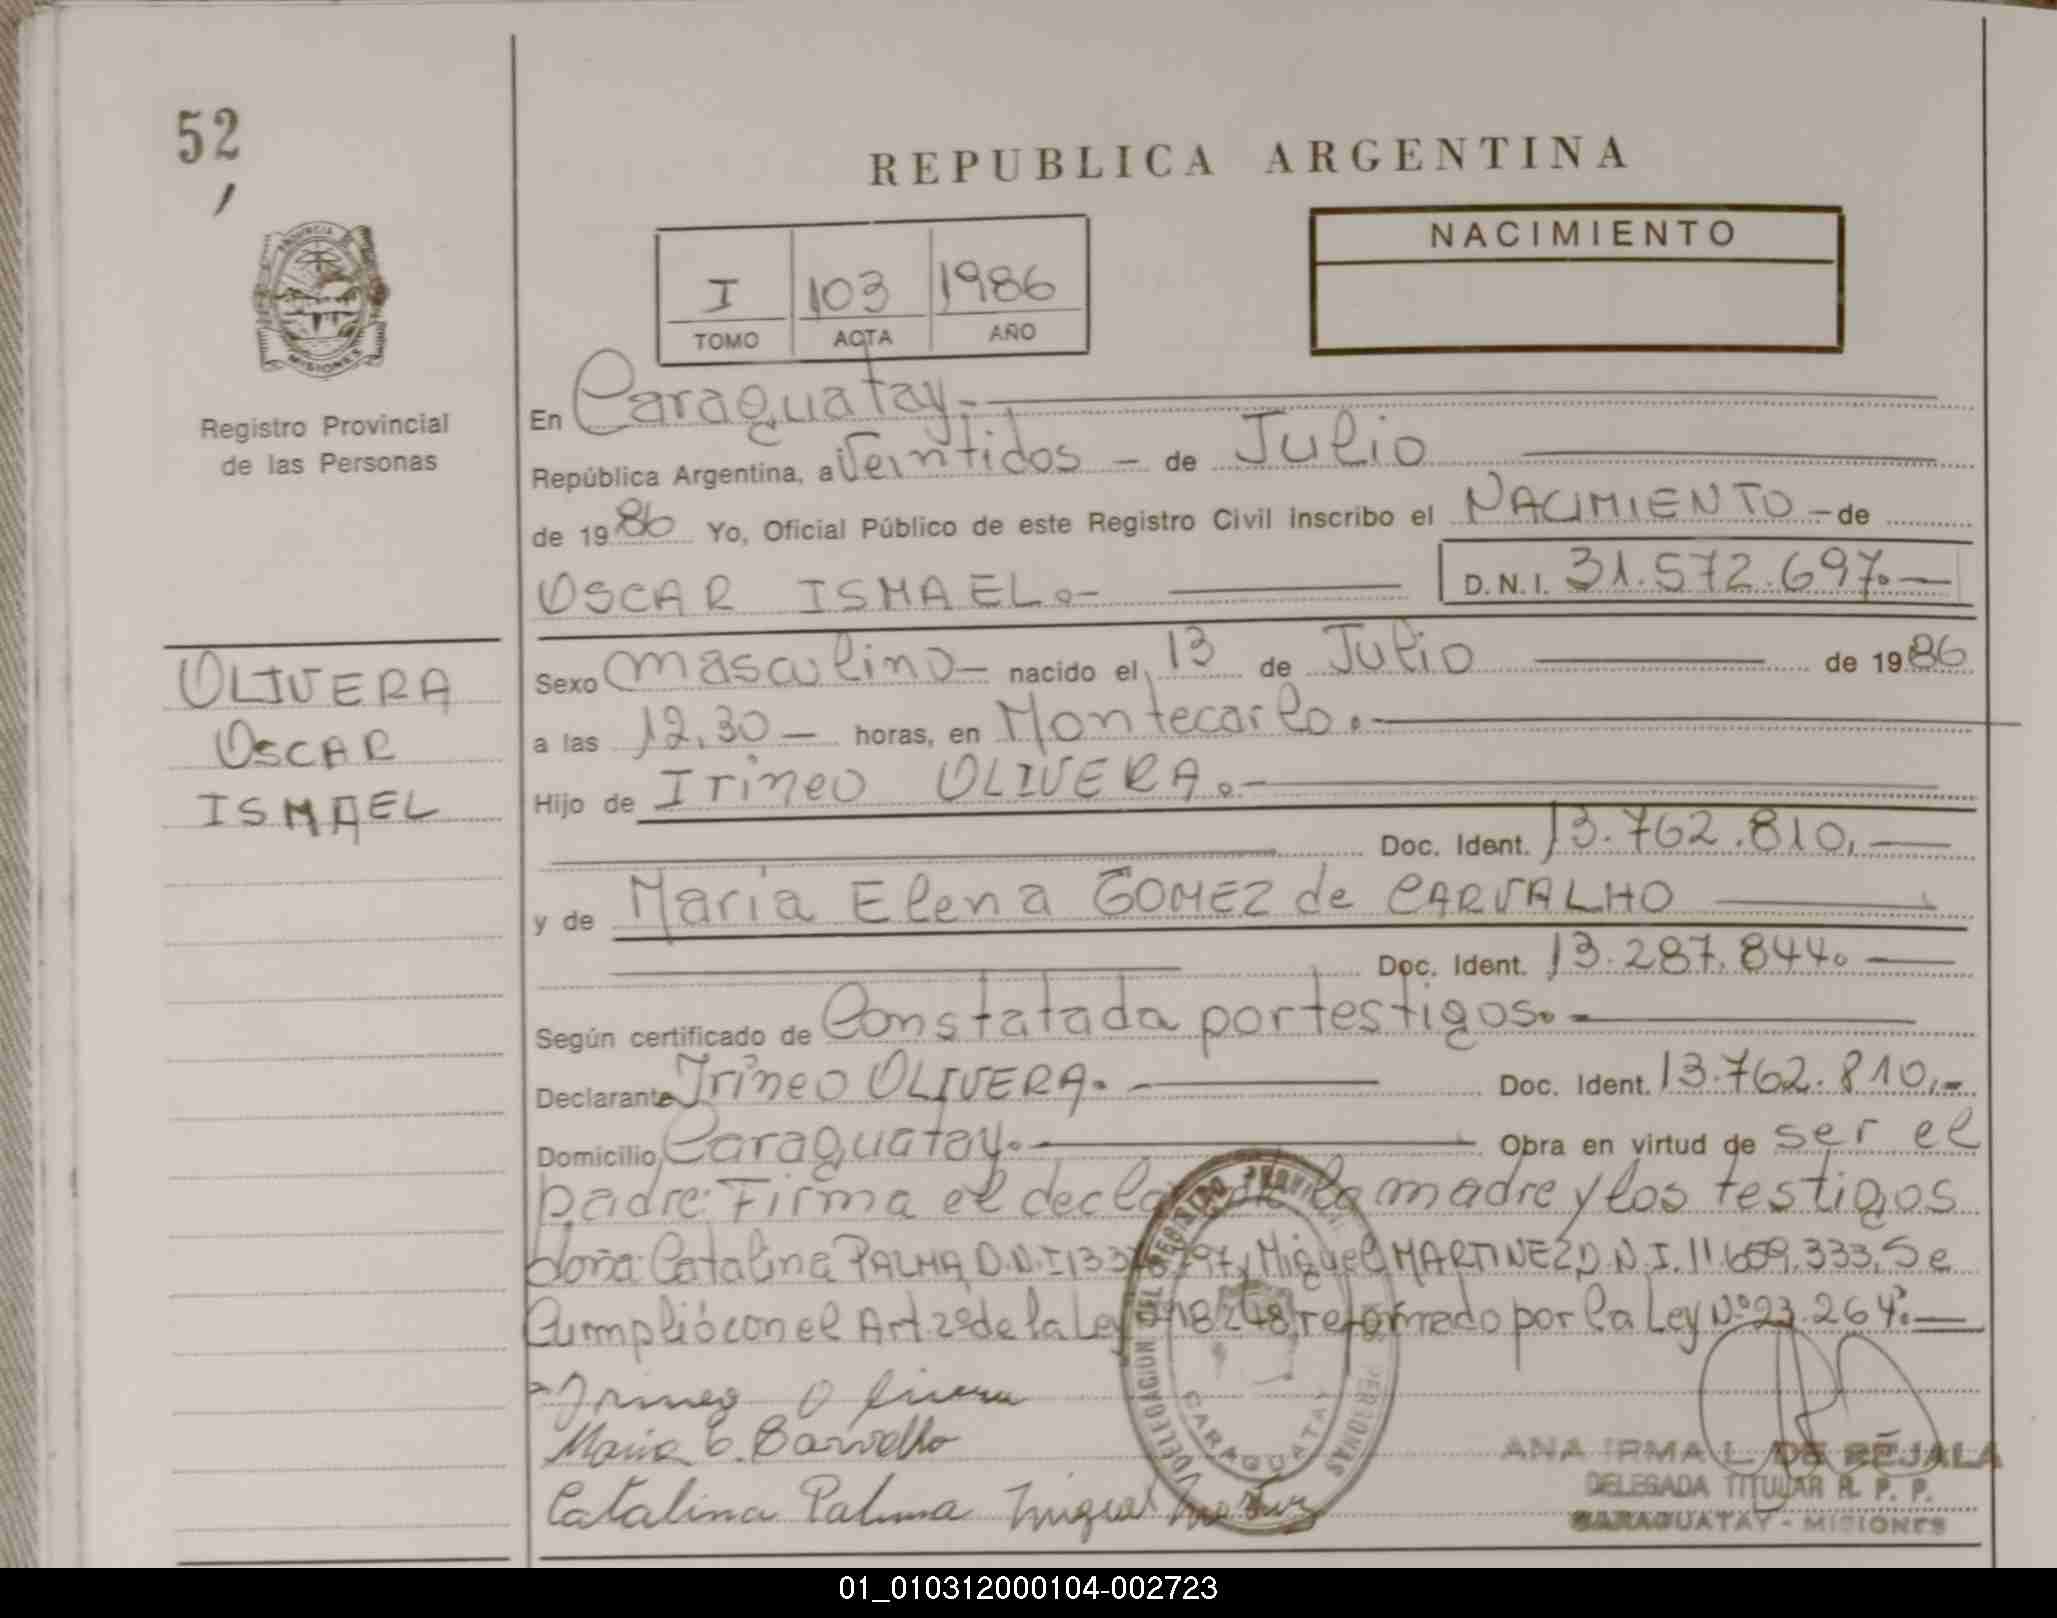 52
REPUBLICA ARGENTINA
NACIMIENTO
I 103 1986
TOMO ACTA AÑO
PROVINCIA
MISIONES
Registro Provincial
de las Personas
OLIVERA
OSCAR
ISMAEL
En Caraguatay.-
República Argentina, a Veintidos - de Julio
de 1986 Yo, Oficial Público de este Registro Civil inscribo el NACIMIENTO - de
OSCAR ISMAEL.- D.N.I. 31.572.697.-
Sexo masculino - nacido el 13 de Julio de 1986
a las 12,30 - horas, en Montecarlo.-
Hijo de Irineo OLIVERA.-
Doc. Ident. 13.762.810.-
y de Maria Elena GOMEZ de CARVALHO
Doc. Ident. 13.287.844.-
Según certificado de Constatada por testigos.-
Declarante Irineo OLIVERA.- Doc. Ident. 13.762.810.-
Domicilio Caraguatay.- Obra en virtud de ser el
padre. Firma el la madre y los testigos
doña: Catalina PALMA D.N.I. y Miguel MARTINEZ D.N.I. 11.659.333, Se
Cumplió con el Art 2º de la Ley 18248, reformado por la Ley Nº 23.264.-
Irineo Olivera
Maria E. Carvalho
Catalina Palma Miguel
ANA IRMA L. DE BEJALA
DELEGADA TITULAR R. P. P.
CARAGUATAY - MISIONES
CARAGUATAY
01_010312000104-002723